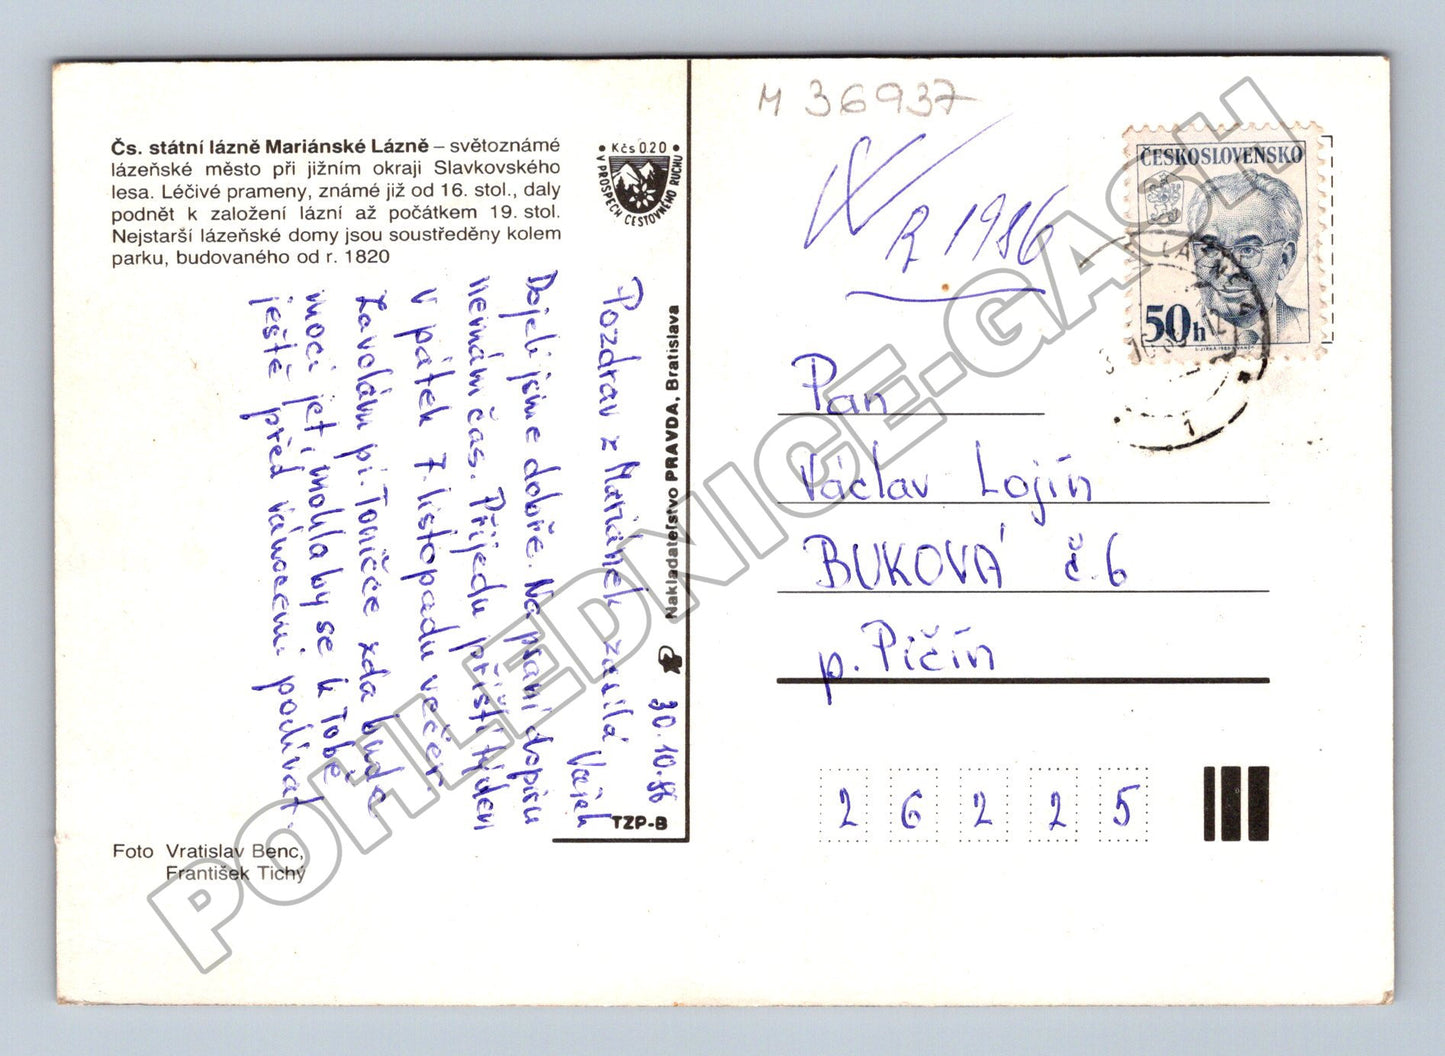 Čs. státní lázně Mariánské Lázně – světoznámé
lázeňské město při jižním okraji Slavkovského
lesa. Léčivé prameny, známé již od 16. stol., daly
podnět k založení lázní až počátkem 19. stol.
Nejstarší lázeňské domy jsou soustředěny kolem
parku, budovaného od r. 1820
• Kčs 0.20 •
V PROSPĚCH CESTOVNÉHO RUCHU
30.10.86
Pozdrav z Mariánek zasílá Vašek
Dojeli jsme dobře. Na psaní dopisu
nemám čas. Přijedu příští týden
v pátek 7. listopadu večer.
Zavolám pí. Toničce zda bude
moci jet i mohla by se k Tobě
ještě před vánocemi podívat.
Nakladateľstvo PRAVDA, Bratislava
TZP-B
Foto Vratislav Benc,
František Tichý
M 36937
R 1986
ČESKOSLOVENSKO
50h
Pan
Václav Lojín
BUKOVÁ č.6
p. Pičín
26225
POHLEDNICE-GASH